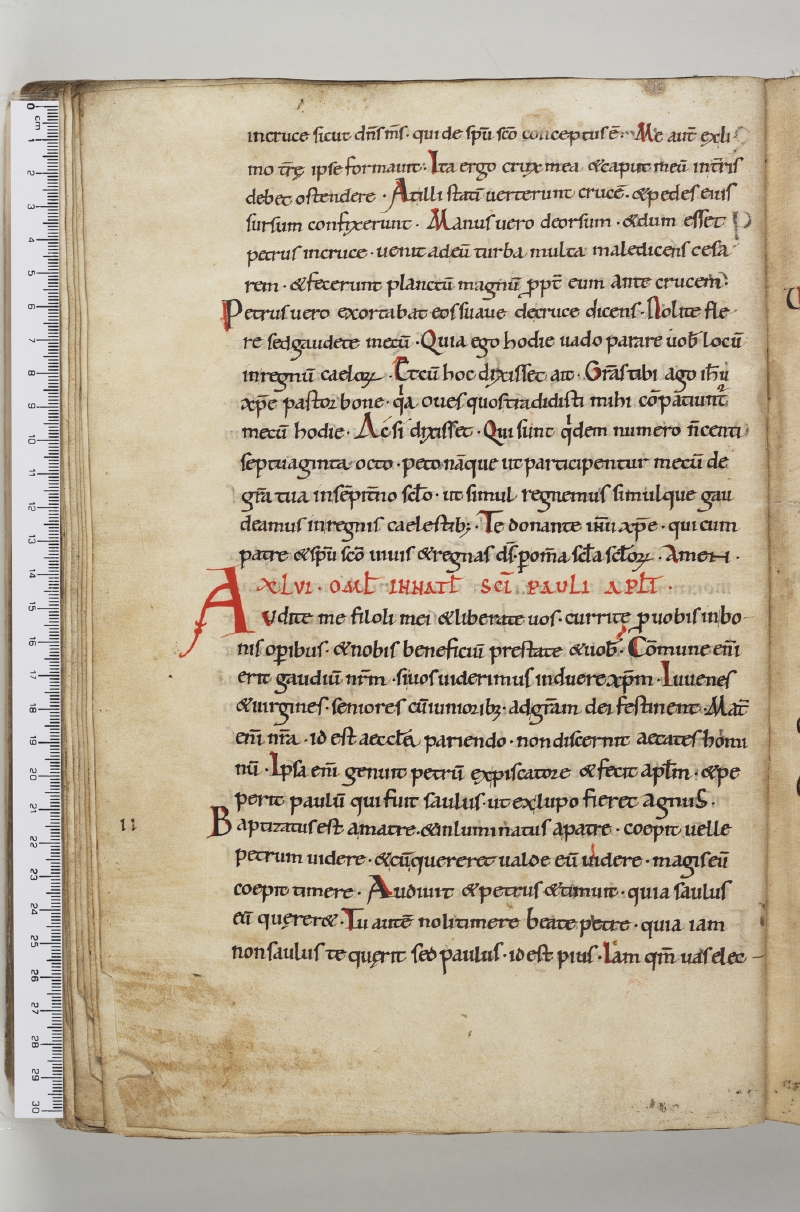 incruce sicut dn̄s m̄s· qui de sp̄u sc̄o conceptus ē· Me aut̄ exli
mo tr̄ę ipse formauit· Ita ergo crux mea &caput meū int̄ris
debet ostendere· Atilli statī uerterunt crucē·&pedes eius
sursum confixerunt· Manus uero deorsum·&dum esset
petrus incruce·uenit adeū turba multa maledicens cesa
rem·&fecerunt planctū magnū ꝓpt̄ eum ante crucem·
Petrus uero exortabat eos suaue decruce dicens·Nolite fle
re sedgaudete mecū·Quia ego hodie uado parare uob̄ locū
inregnū caeloꝝ·Etcū hoc dixisset ait·Gr̄as tibi ago ih̄u
xp̄e pastor bone·qa oues quos tradidisti mihi cōpatiunt̄
mecū hodie·Acsi dixisset·Qui sunt qͥdem numero n̄centi
septuaginta octo·peto nāque ut participentur mecū de
gr̄a tua insēpit̄no sc̄lo·ut simul regnemus simulque gau
deamus inregnis caelestib;·Te donante ih̄u xp̄e·qui cum
patre &sp̄u sc̄o uiuis &regnas ds̄·ꝑom̄a sc̄la sc̄loꝝ·Amen·
XLVI·OML̄ INNATL̄ SC̄I PAULI APL̄I·
Audite me filoli mei &liberate uos·currite ꝑuobis inbo
nis oꝑibus·&nobis beneficiū prestate &uob̄·Cōmune em̄
erit gaudiū nr̄m·siuos uiderimus induere xp̄m·Iuuenes
&uirgines·seniores cū iunioribꝫ·adgr̄am dei festinent·Mat̄
em̄ nr̄a·id est aeccl̄a pariendo·non discernit aetates homi
nū·Ipsa em̄ genuit petrū expiscatore &fecit apl̄m·&pe
perit paulū qui fuit saulus·ut exlupo fieret agnus·
Baptizatus est amatre·&inluminatus apatre·coepit uelle
petrum uidere·&cū quereret ualde eū uidere·magis eū
coepit timere·Audiuit &petrus &timuit·quia saulus
eū quęrer&·Tu autē noli timere beate petre·quia iam
non saulus te quęrit sed paulus·id est pius·Iam qm̄ uas elec
11